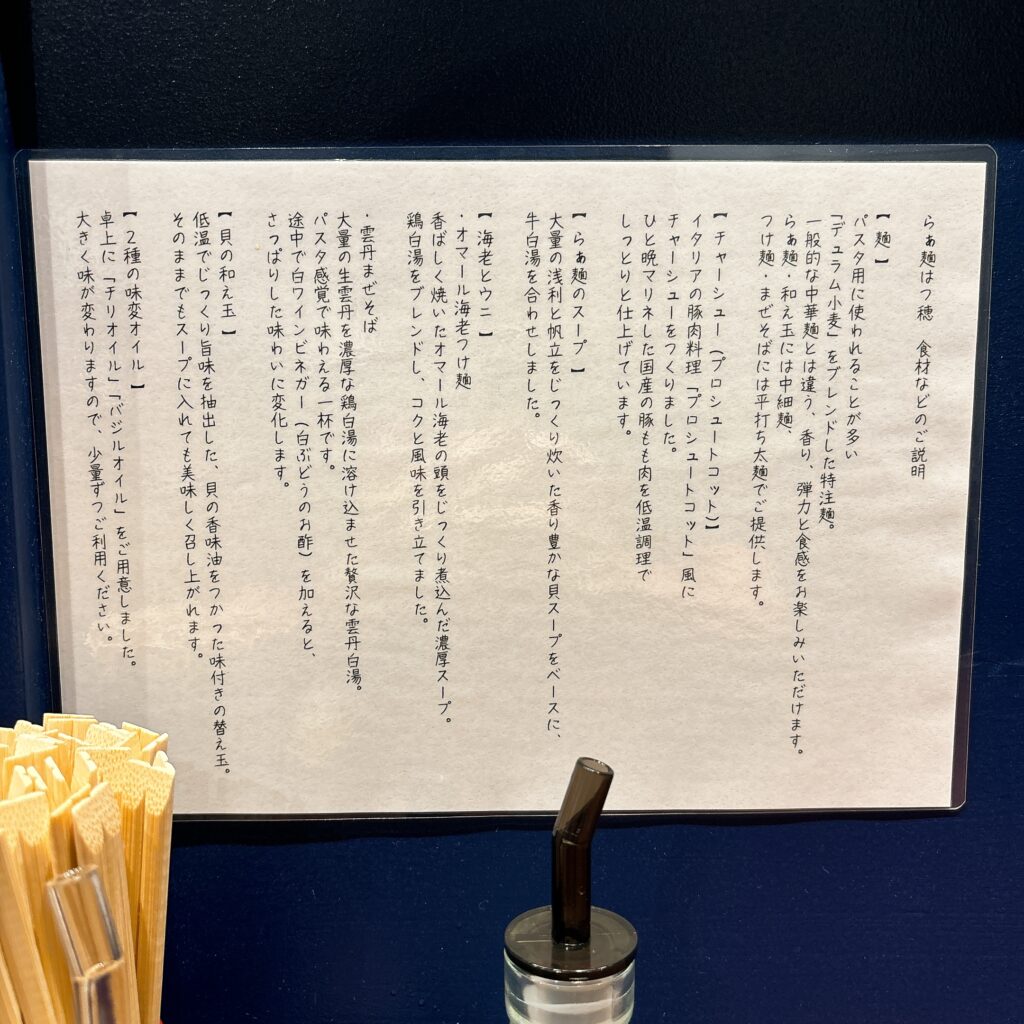 らぁ麺はつ穂　食材などのご説明
【麺】
パスタ用に使われることが多い
「デュラム小麦」をブレンドした特注麺。
一般的な中華麺とは違う、香り、弾力と食感をお楽しみいただけます。
らぁ麺・和え玉には中細麺、
つけ麺・まぜそばには平打ち太麺でご提供します。
【チャーシュー（プロシュートコット）】
イタリアの豚肉料理「プロシュートコット」風に
チャーシューをつくりました。
ひと晩マリネした国産の豚もも肉を低温調理で
しっとりと仕上げています。
【らぁ麺のスープ】
大量の浅利と帆立をじっくり炊いた香り豊かな貝スープをベースに、
牛白湯を合わせしました。
【海老とウニ】
・オマール海老つけ麺
香ばしく焼いたオマール海老の頭をじっくり煮込んだ濃厚スープ。
鶏白湯をブレンドし、コクと風味を引き立てました。
・雲丹まぜそば
大量の生雲丹を濃厚な鶏白湯に溶け込ませた贅沢な雲丹白湯。
パスタ感覚で味わえる一杯です。
途中で白ワインビネガー（白ぶどうのお酢）を加えると、
さっぱりした味わいに変化します。
【貝の和え玉】
低温でじっくり旨味を抽出した、貝の香味油をつかった味付きの替え玉。
そのままでもスープに入れても美味しく召し上がれます。
【２種の味変オイル】
卓上に「チリオイル」「バジルオイル」をご用意しました。
大きく味が変わりますので、少量ずつご利用ください。